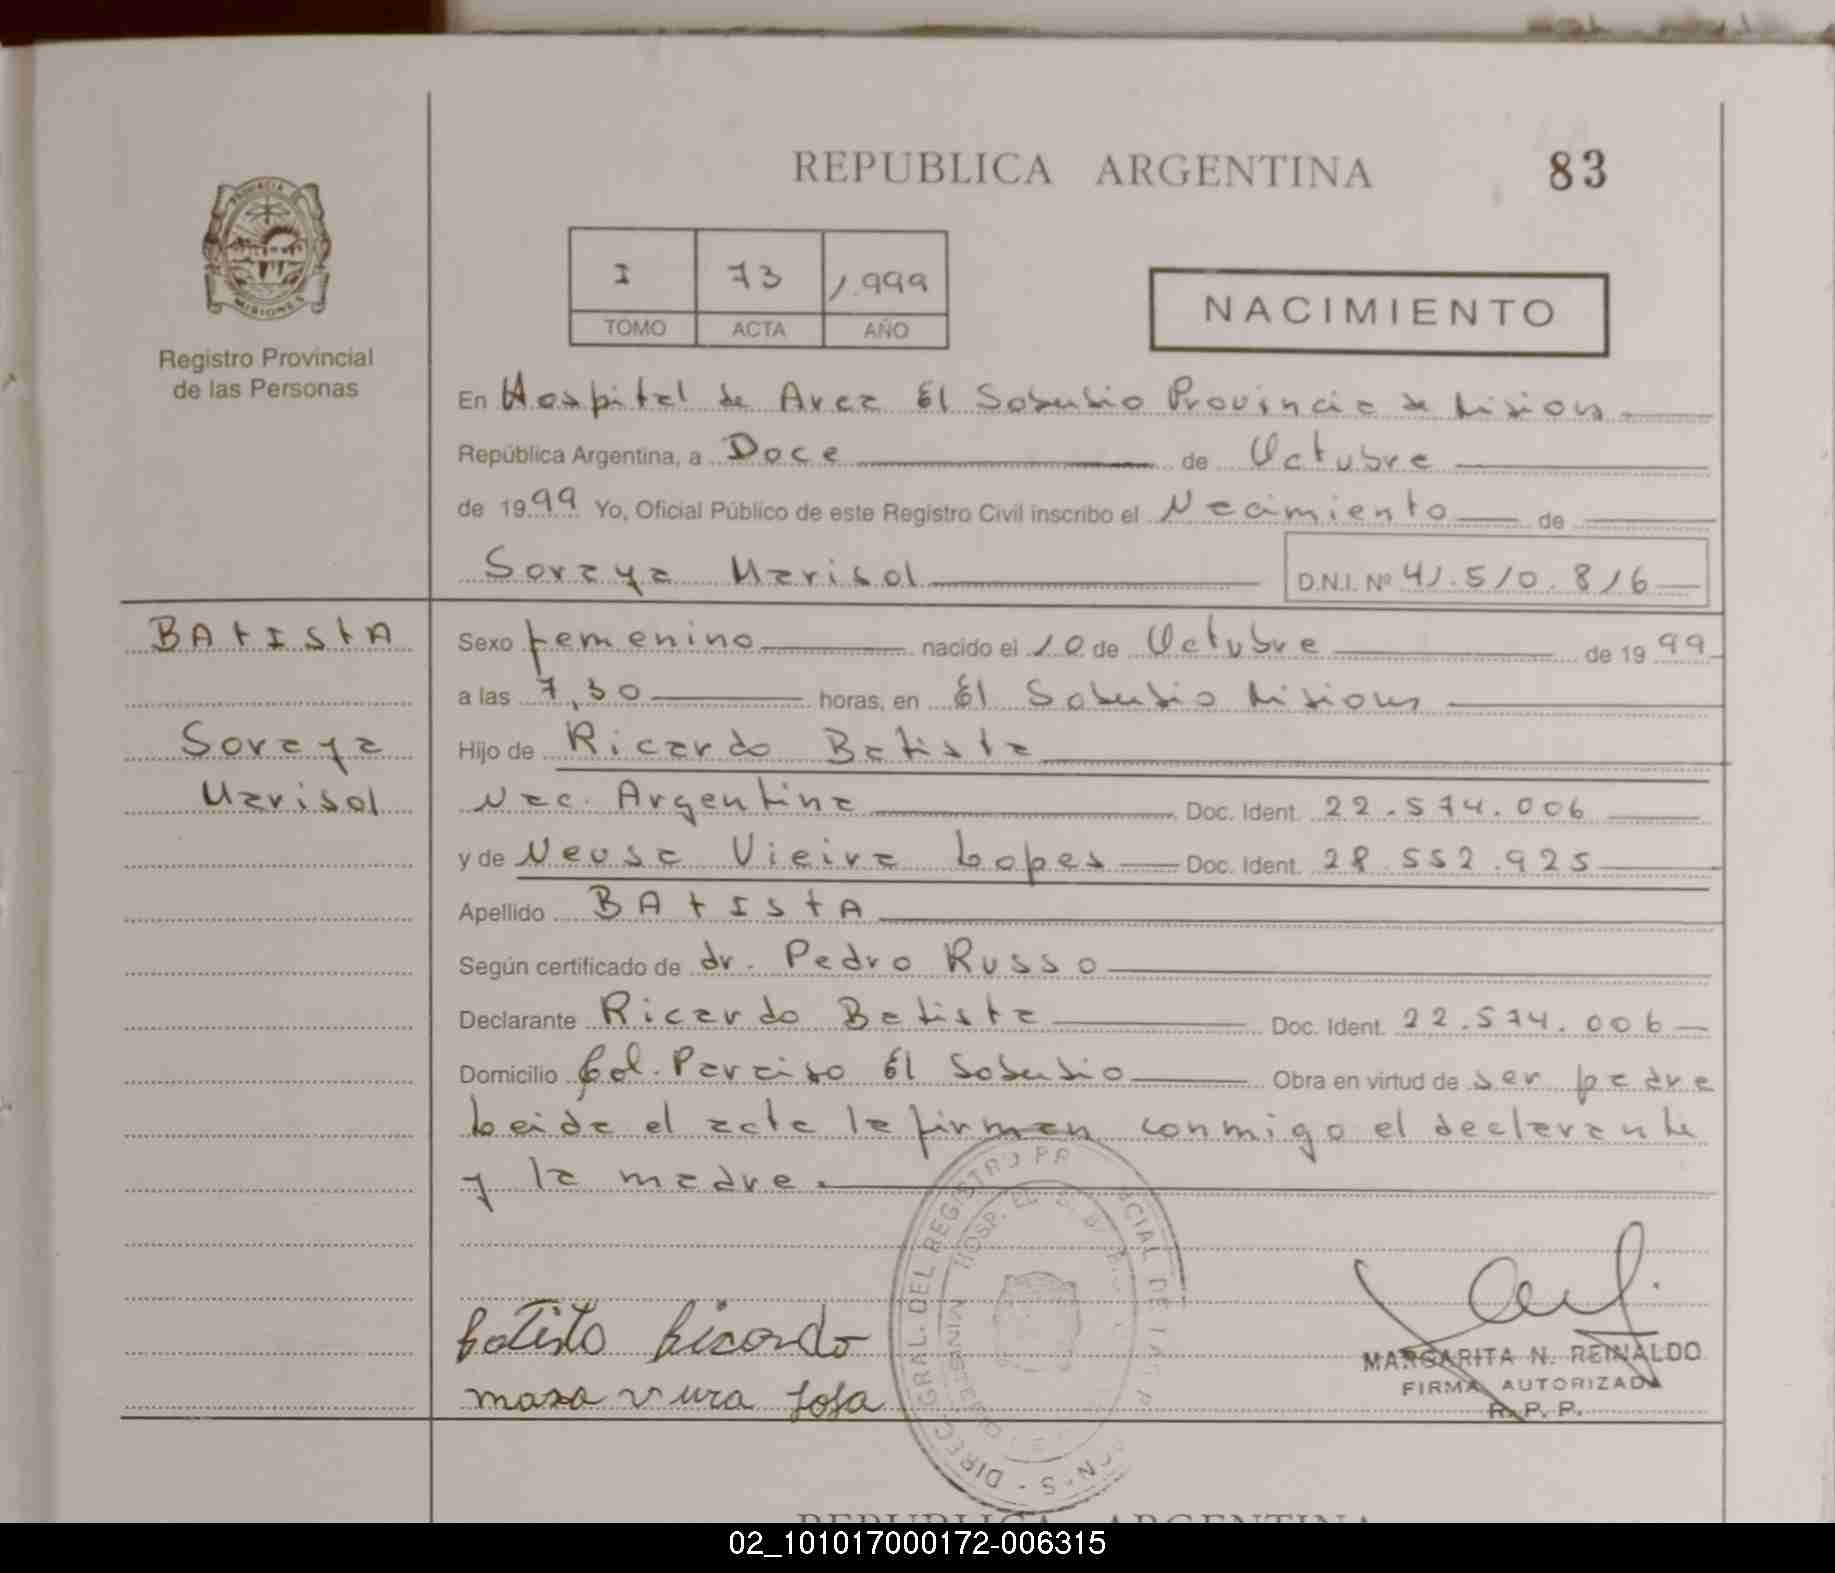 REPUBLICA ARGENTINA
83
PROVINCIA
MISIONES
Registro Provincial
de las Personas
I 73 1.999
TOMO ACTA AÑO
NACIMIENTO
En Hospital de Area El Soberbio Provincia de Misiones
República Argentina, a Doce de Octubre
de 1999 Yo, Oficial Público de este Registro Civil inscribo el Nacimiento de
Soraya Marisol D.N.I. Nº 41.510.816
BAtIstA
Soraya
Marisol
Sexo femenino nacido el 10 de Octubre de 1999
a las 7,30 horas, en El Soberbio Misiones
Hijo de Ricardo Batista
Nac. Argentina Doc. Ident. 22.574.006
y de Neusa Vieira Lopes Doc. Ident. 28.552.925
Apellido BAtIstA
Según certificado de dr. Pedro Russo
Declarante Ricardo Batista Doc. Ident. 22.574.006
Domicilio Col. Paraiso El Soberbio Obra en virtud de ser padre
Leida el acta la firman conmigo el declarante
y la madre.
DIREC. GRAL. DEL REGISTRO PR CIAL DE LAS P
HOSP. EL
MINIST
Batista Ricardo
MARGARITA N. REINALDO
FIRMA AUTORIZADA
R. P. P.
REPUBLICA ARGENTINA
02_101017000172-006315